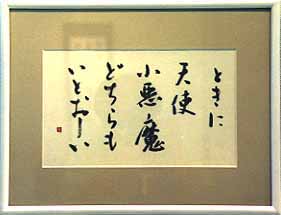 ときに
天使
小悪魔
どちらも
いとおしい